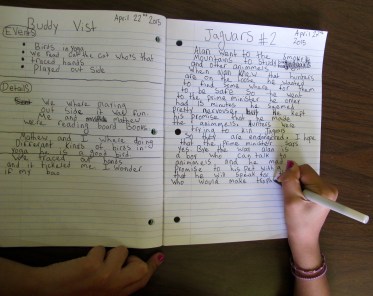 Buddy Vist
April 22nd 2015
Events
Birds in yoga
we read cat the cat who's that
traced hands
played out side
Details
We where playing
out side it was fun.
Me and Mathew
were reading bowl Boots
Mathew and I where doing
Different kinds of birds in
yoga he is a good bird
We traced our hands
and it tickled me I wonder
if my hav
Jaguars #2
April 2015
Alan want to the
Mountains to Study
and other animmels
When alan knew that hunters
are on the loose he wanted
to find some where for them
to be safe. So he went
to the prime minister he onler
had 15 minutes. He seemed
pretty nerveser but he kept
his promise that he made
the animmels. Hunters were
trying to kill Jagurs
So they are endangered. I hope
that the Prime minister says
yes. Bye the way alan is
a boy who can talk to
animmels and he made
promise to his pet
that he will speak to
who would make